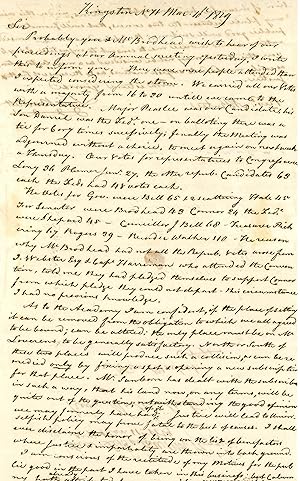 Kingston N H Mar 11 1819
Sir
Probably you & Mr Brodhead wish to hear of our
proceedings at our Annual meeting yesterday, I wish
this to inform you. There were more people attended than
I expected considering the storm. We carried all our votes
with a majority from 16 to 20 until we came to the
Representative. Major Peaslee was our Candidate, his
Son Daniel was the Fedl. one - on balloting there was a
tie for 6 or 7 times successively; finally the Meeting was
adjourned without a choice, to meet again on next week
Thursday. Our Votes for representatives to Congress were
Long 36 Plumer Junr. 27, the other repub. Candidates 63
each the Feds. had 48 votes each.
The Votes for Gov. were Bell 65 scattering Hale 45
For Senator were Brodhead 43 Connor 24 the Feds.
were Shepard 45 - Councillor J Bell 68 - Treasurer Pick
ering by Rogers 39 - Recorder Walker 118 - The reason
why Mr Brodhead had not all the Repub. Votes arose from
J. Webster Esq & Capt. Harri who attended the Conven
tion, told me they had pledged themselves to support Connor
from which pledge they could not depart - this circumstance
I had no previous knowledge.
As to the Academy I am confident, if the place of setting
it can be removed from the obligation to which we all agreed
to be bound; can be altered; the only place must be on Mr
Loverens, to be generally satisfactory. North or South of
these two places will produce such a collision, as can be re
medied only by fixing a spot & opening a new subscription
for that place. Mr Sanborn has dealt with the subscribers
in such a way, that his land now on any terms, will be
quitis out of the question, notwithstanding the good opinion
we may formerly have had of it. Justice will lead to them.
selfish policy may prove fatal to the best of causes. I shall
ever disclaim the honor of being on the list of benefactors
where justice & impartiality are thrown into back ground.
I am conscious of the rectitude of my Motives for the pub
lic good in the part I have taken in this business.